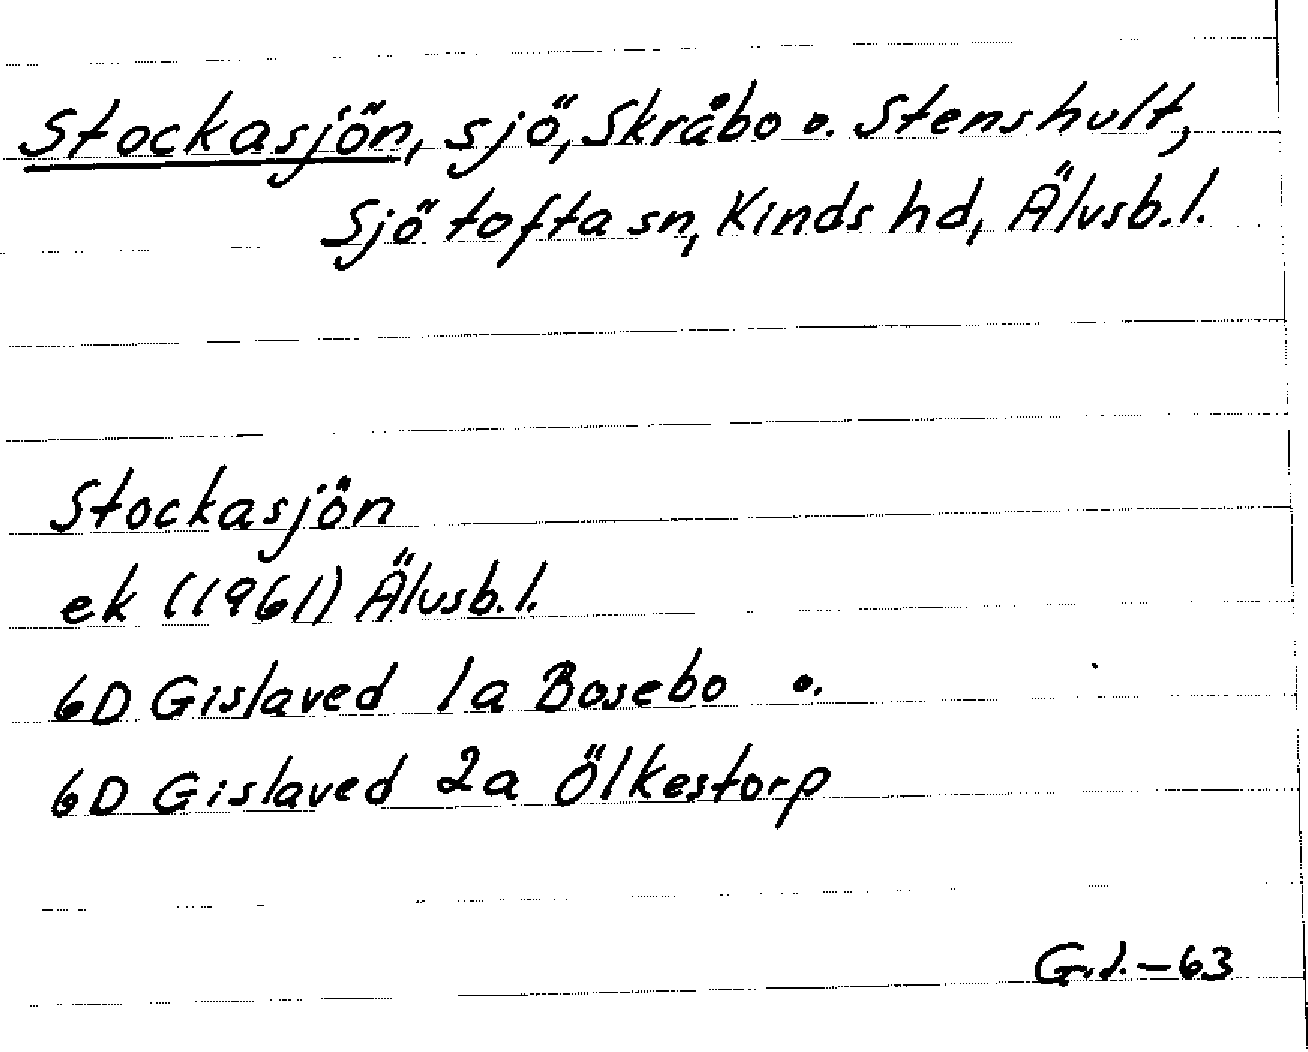 Stockasjön, sjö, Skråbo o. Stenshult,
Sjötofta sn, Kinds hd, Älvsb.l.
Stockasjön
ek (1961) Älvsb.l.
6D Gislaved 1a Bosebo o.
6D Gislaved 2a Ölkestorp
G.J.-63